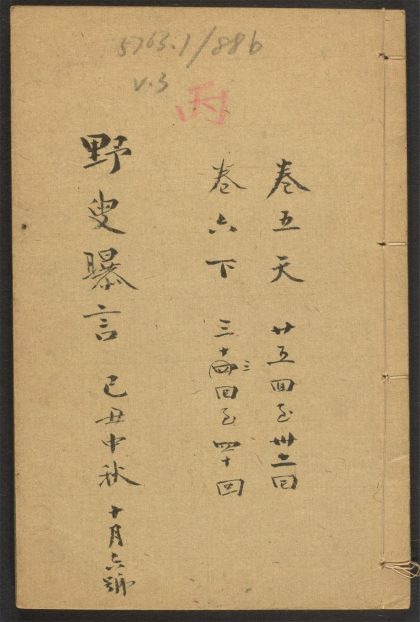 5763.1/886
v.3
丙
卷五天 廿五回至卅二回
卷六下 三十三回至四十回
野叟曝言 己丑中秋 十月六號